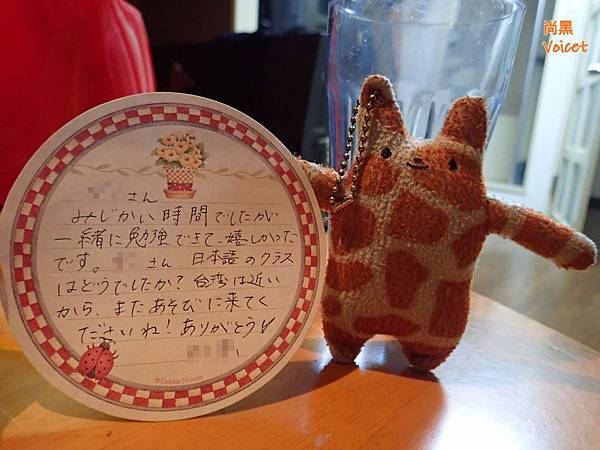 尚黑
Voicet
さん
みじかい時間でしたが
一緒に勉強できて、嬉しかった
です。 さん 日本語のクラス
はどうでしたか?台湾は近い
から、またあそびに来てく
ださいね!ありがとう
©Debbie Mumm